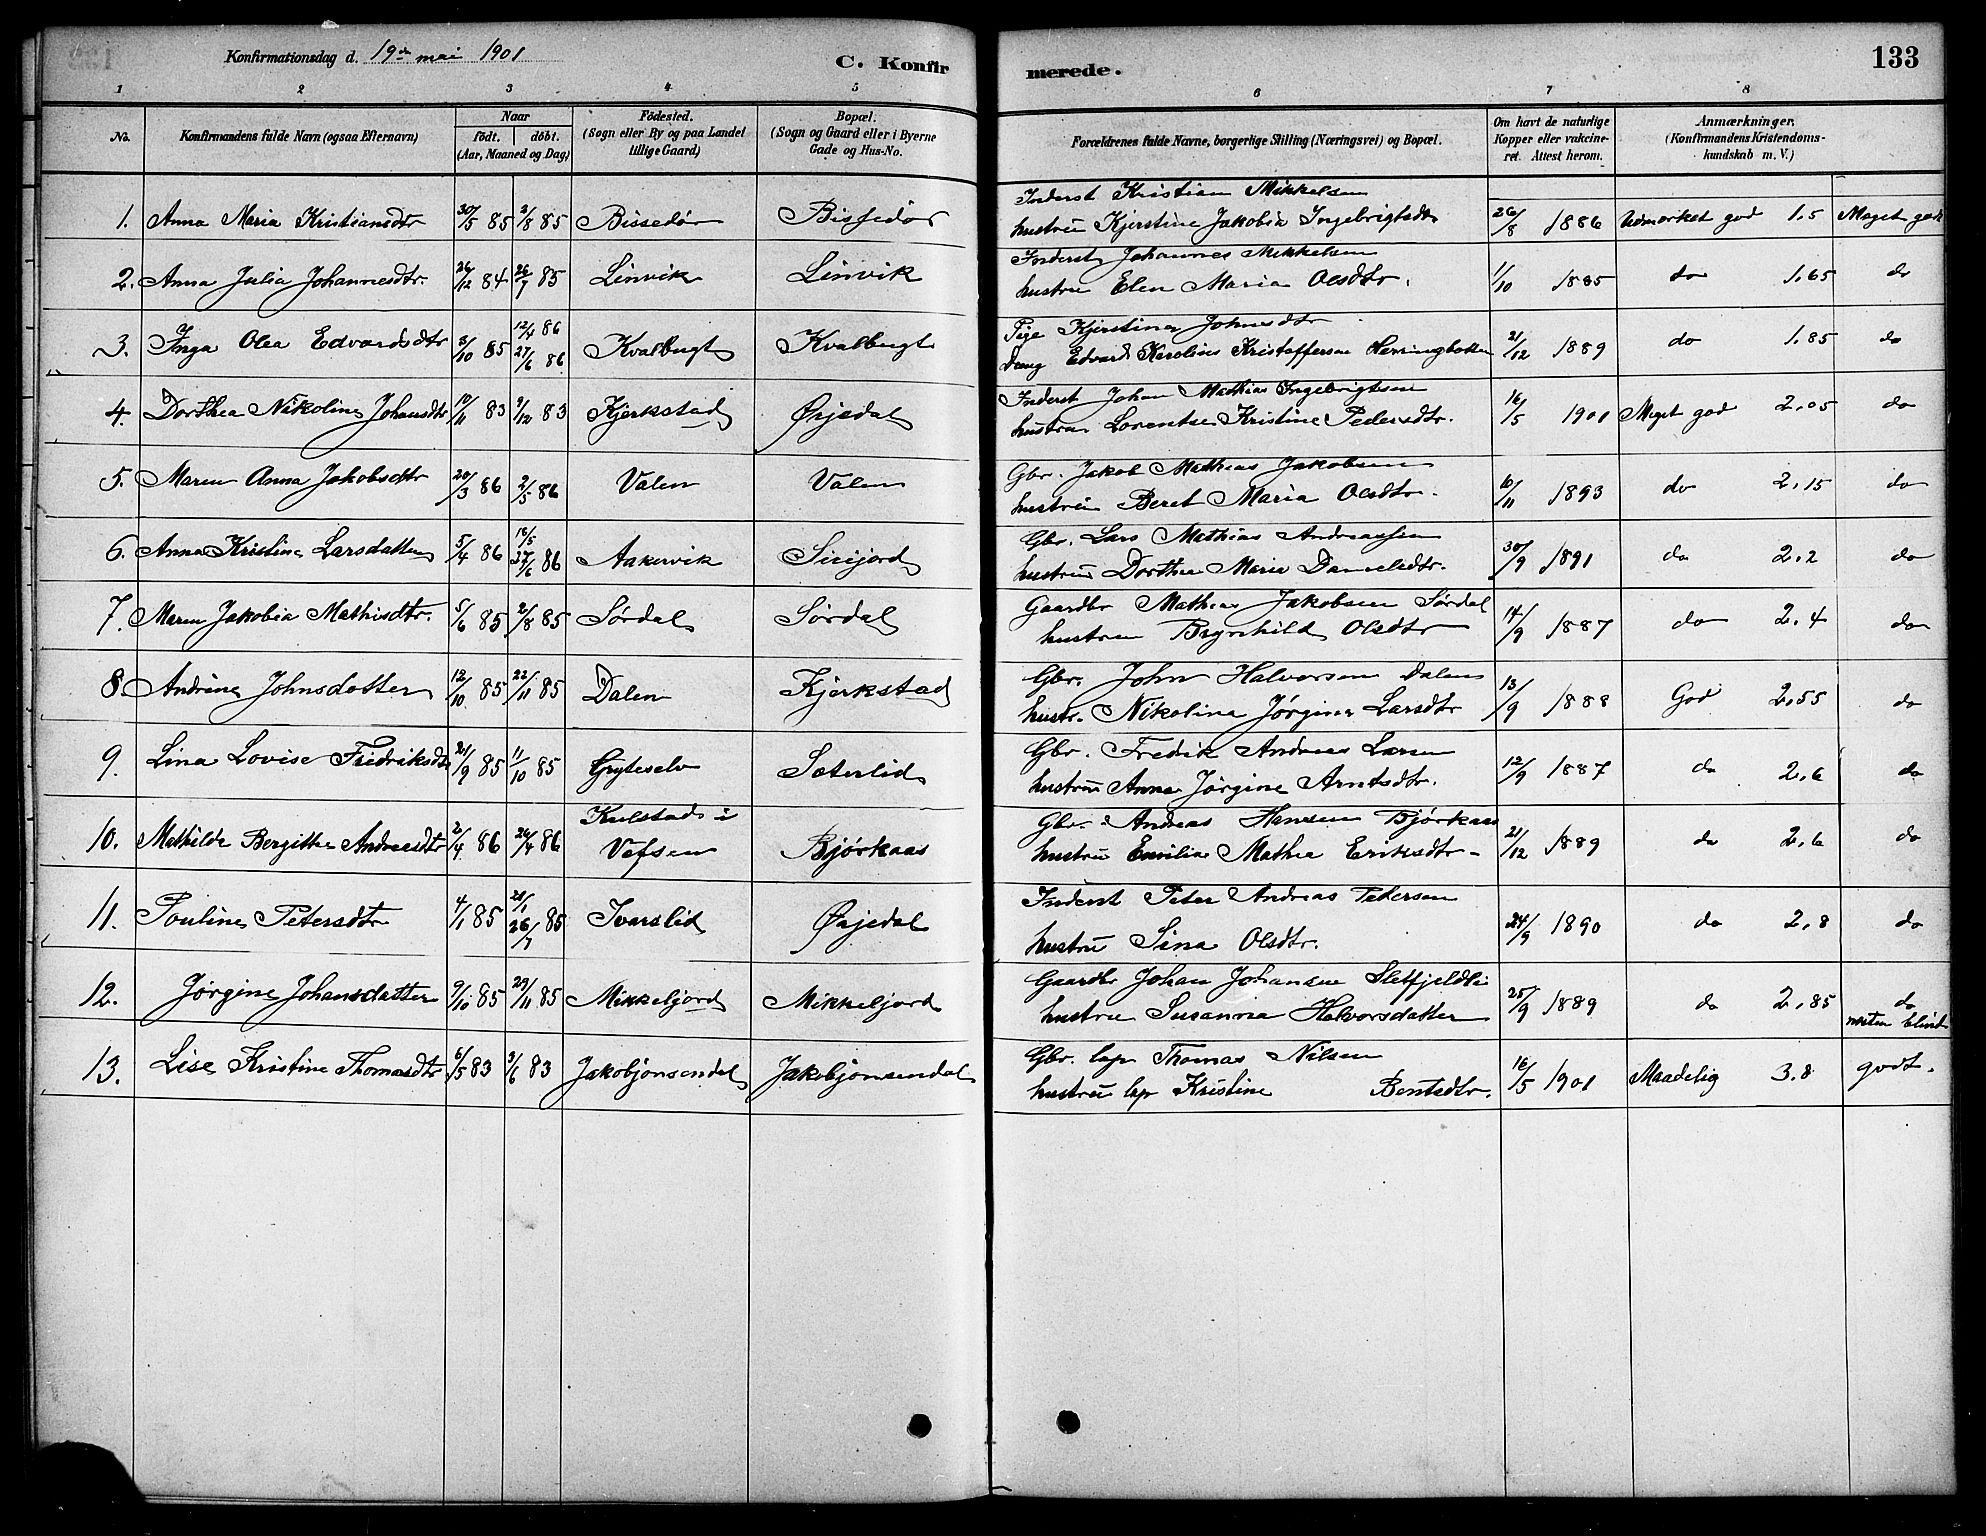 Konfirmationsdag d. 19de mai 1901
C. Konfirmerede.
133
1 2 3 4 5 6 7 8
No.
Konfirmandens fulde Navn (ogsaa Efternavn)
Naar
födt. döbt.
(Aar, Maaned og Dag)
Födested.
(Sogn eller By og paa Landet
tillige Gaard)
Bopæl.
(Sogn og Gaard eller i Byerne
Gade og Hus-No.
Forældrenes fulde Navne, borgerlige Stilling (Næringsvei) og Bopæl.
Om havt de naturlige
Kopper eller vakcine-
ret. Attest herom.
Anmærkninger.
(Konfirmandens Kristendoms-
kundskab m. V.)
Inderst Kristian Mikkelsen
1. Anna Maria Kristiansdtr 30/5 85 2/8 85 Bissedør Bissedør hustru Kjerstine Jakobia Ingebrigtsdtr 26/8 1886 Udmerket god 1.5 Meget godt
Inderst Johannes Mikkelsen
2. Anna Julia Johannesdtr. 26/12 84 26/7 85 Linvik Linvik hustru Elen Maria Olsdtr. 1/10 1885 do 1.65 do
12/4 86 Pige Kjerstina Johnsdtr
3. Inga Olea Edvardsdtr 3/10 85 27/6 86 Kvalbugt Kvalbugt Dreng Edvard Karolius Kristoffersen Herringbotten 21/12 1889 do 1.85 do
Inderst Johan Mathias Ingebrigtsen
4. Dorthea Nikoline Johansdtr 10/11 83 9/12 83 Kjerkstad Øxjedal hustru Lorentse Kristine Pedersdtr. 16/5 1901 Meget god 2.05 do
Gbr. Jakob Mathias Jakobsen
5. Maren Anna Jakobsdtr 20/3 86 2/5 86 Valen Valen hustru Beret Maria Olsdtr. 10/11 1893 do 2.15 do
16/5 Gbr. Lars Mathias Andreassen
6. Anna Kristine Larsdatter 5/4 86 27/6 86 Aakervik Sirijord hustru Dorthea Maria Danielsdtr. 30/9 1891 do 2.2 do
Gaardbr Mathias Jakobsen Sørdal
7. Maren Jakobia Mathisdtr. 5/6 85 2/8 85 Sørdal Sørdal hustru Brynhild Olsdtr 14/9 1887 do 2.4 do
Gbr. John Halvorsen Dalen
8. Andrine Johnsdatter 12/10 85 22/11 85 Dalen Kjerkstad hustr. Nikolina Jørgine Larsdtr 13/9 1888 God 2.55 do
Gbr. Fredrik Andreas Larsen
9. Lina Lovise Fredriksdtr 21/9 85 11/10 85 Gryteselv Sæterlid hustru Anna Jørgine Arntsdtr. 12/9 1887 do 2.6 do
Kulstad i Gbr. Andreas Hansen Bjørkaas
10. Mathilde Bergitte Andreasdtr 2/4 86 26/4 86 Vefsen Bjørkaas hustru Emilie Mathea Eriksdtr. 21/12 1889 do 2.6 do
28/1 Inderst Peter Andreas Petersen
11. Pouline Petersdtr 4/1 85 26/7 85 Ivarslid Øxjedal hustru Sina Olsdtr. 24/9 1890 do 2.8 do
Gaardbr Johan Johansen Sletfjeldli
12. Jørgine Johansdatter 9/10 85 29/11 85 Mikkeljord Mikkeljord hustru Susanna Halvorsdatter 25/9 1889 do 2.85 do
næsten blind
Gbr. lap Thomas Nilsen
13. Lise Kristine Thomasdtr 6/5 83 3/6 83 Jakobjonsendal Jakobjonsendal hustru lap Kristine Bentsdtr. 16/5 1901 Maadelig 3.8 godt.